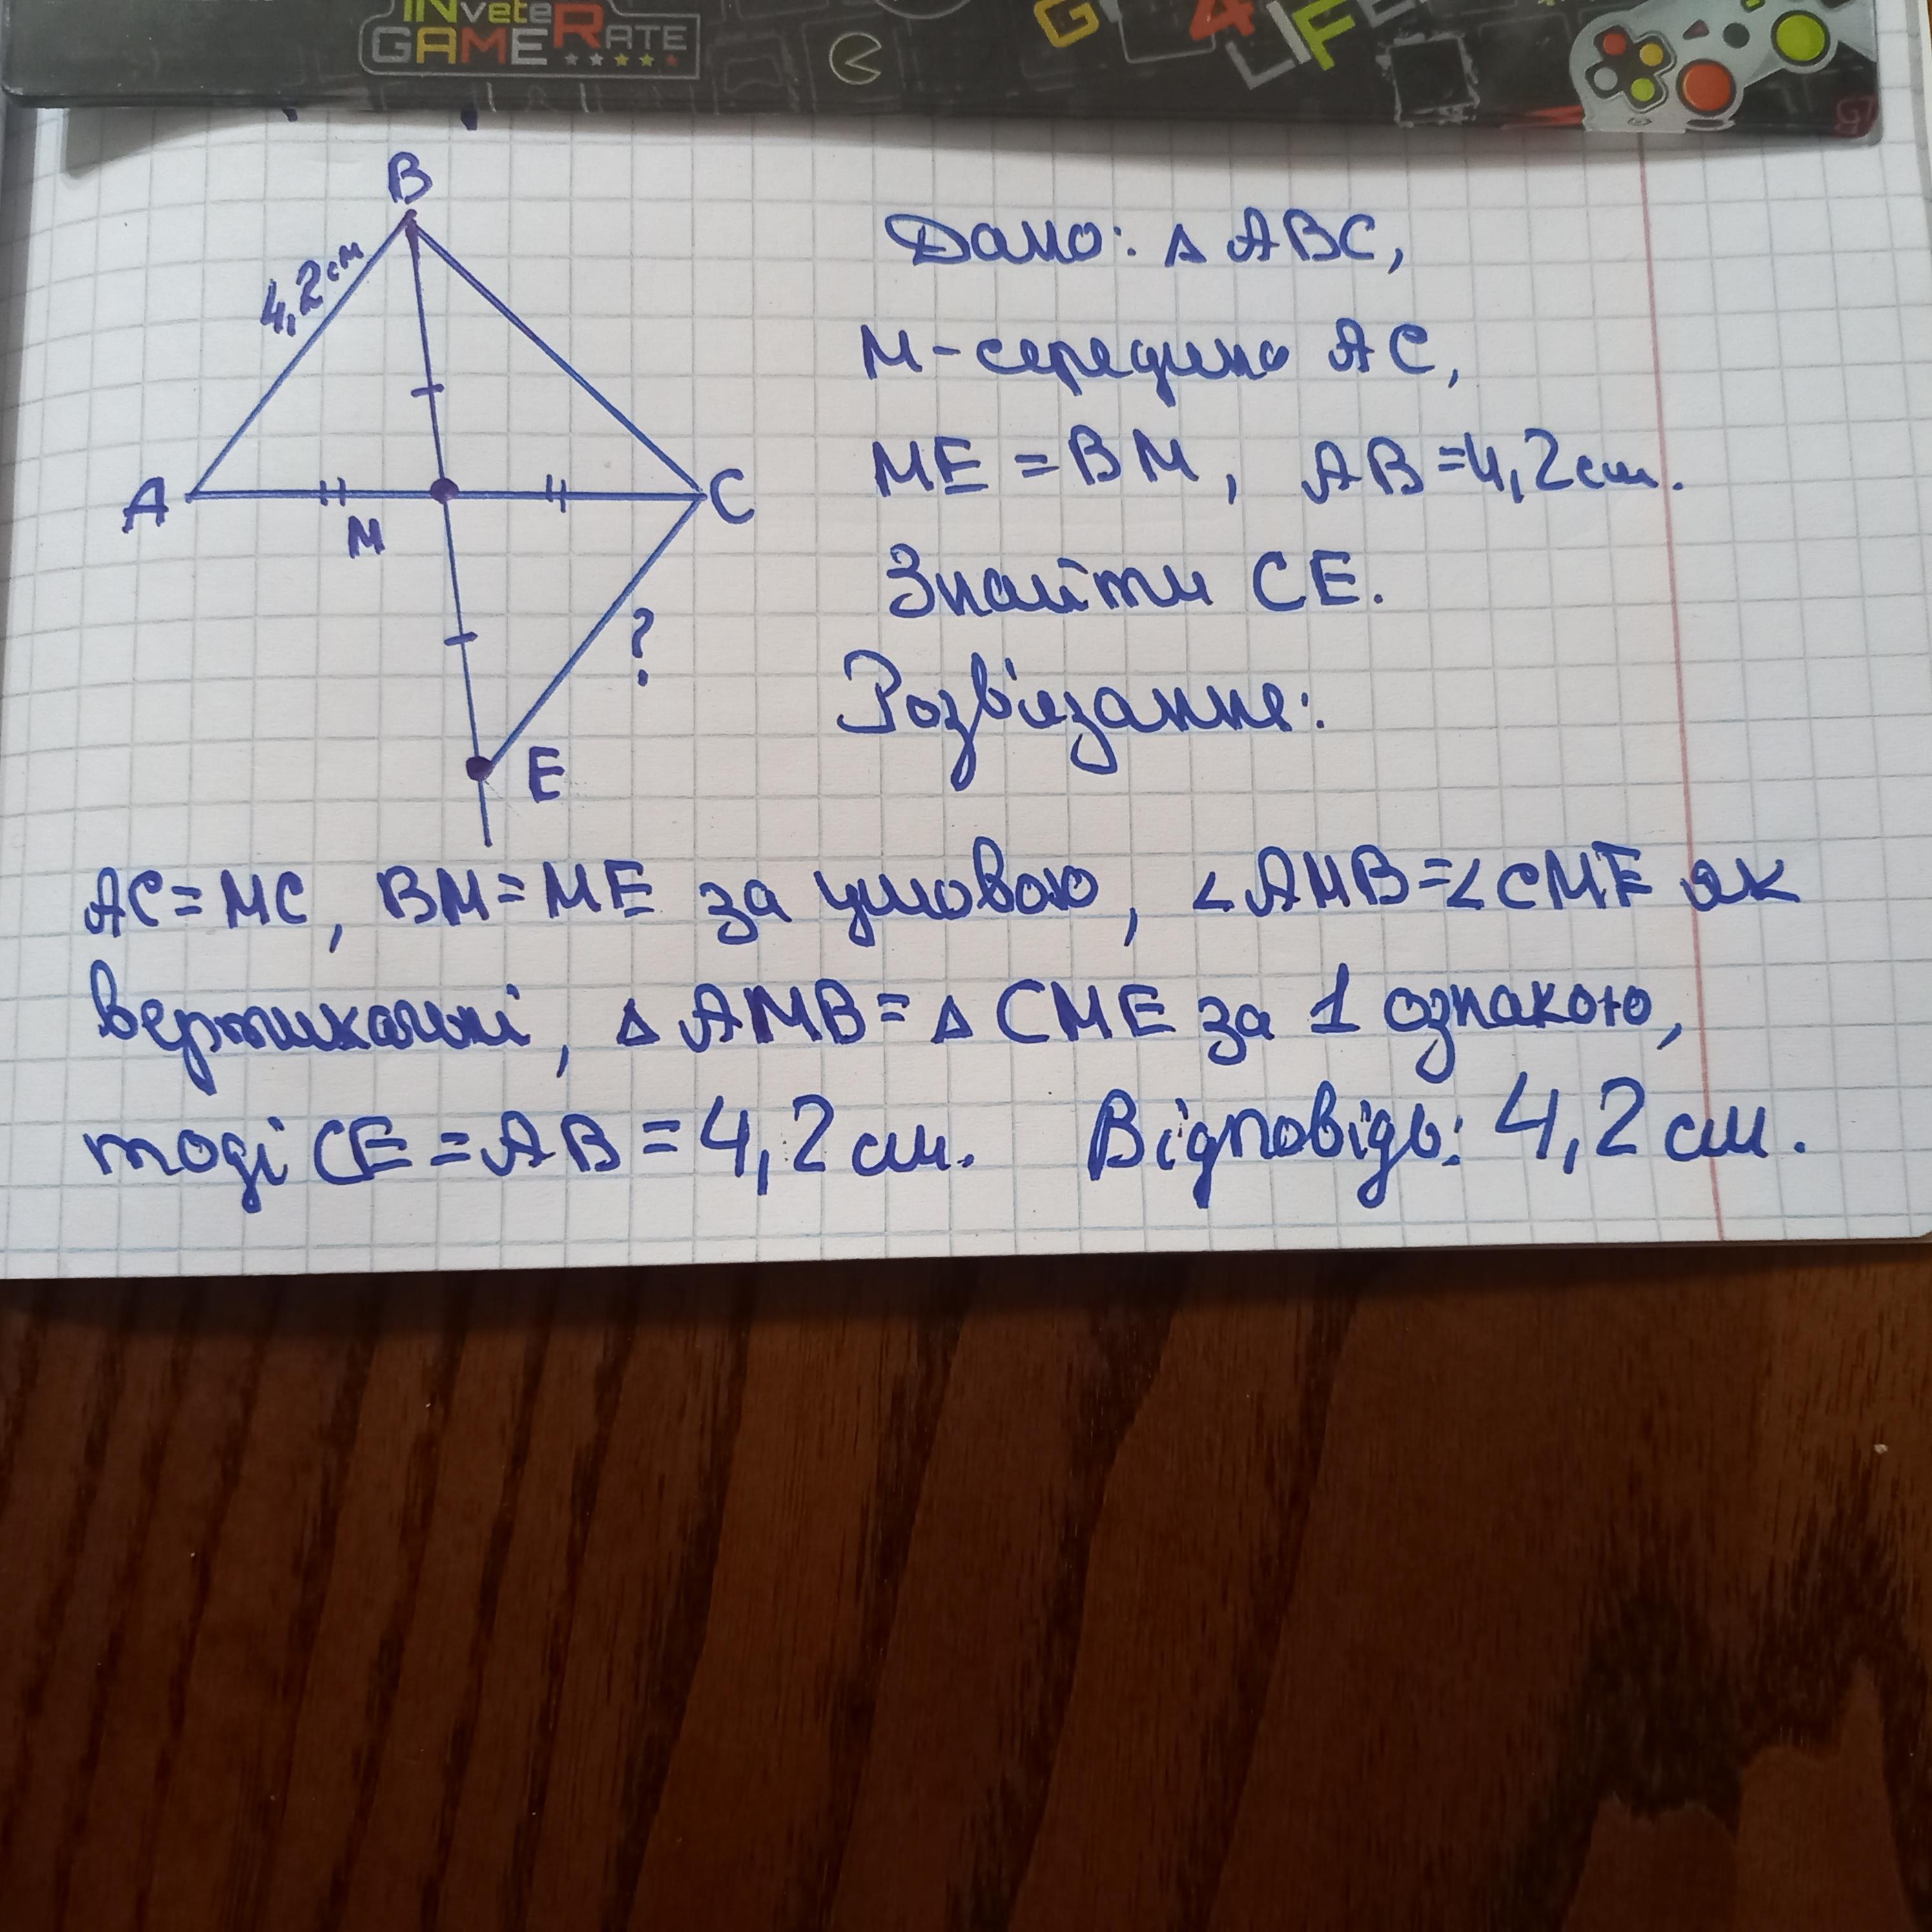 INveteRATE
GAME
G
4
LIFE
B
4,2см
A
M
C
?
E
Дано: △ ABC,
M-середина AC,
ME = BM, AB=4,2см.
Знайти CE.
Розв'язання:
AC=MC, BM=ME за умовою, ∠AMB=∠CME як
вертикальні, △ AMB= △ CME за 1 ознакою,
тоді CE=AB=4,2см. Відповідь: 4,2см.